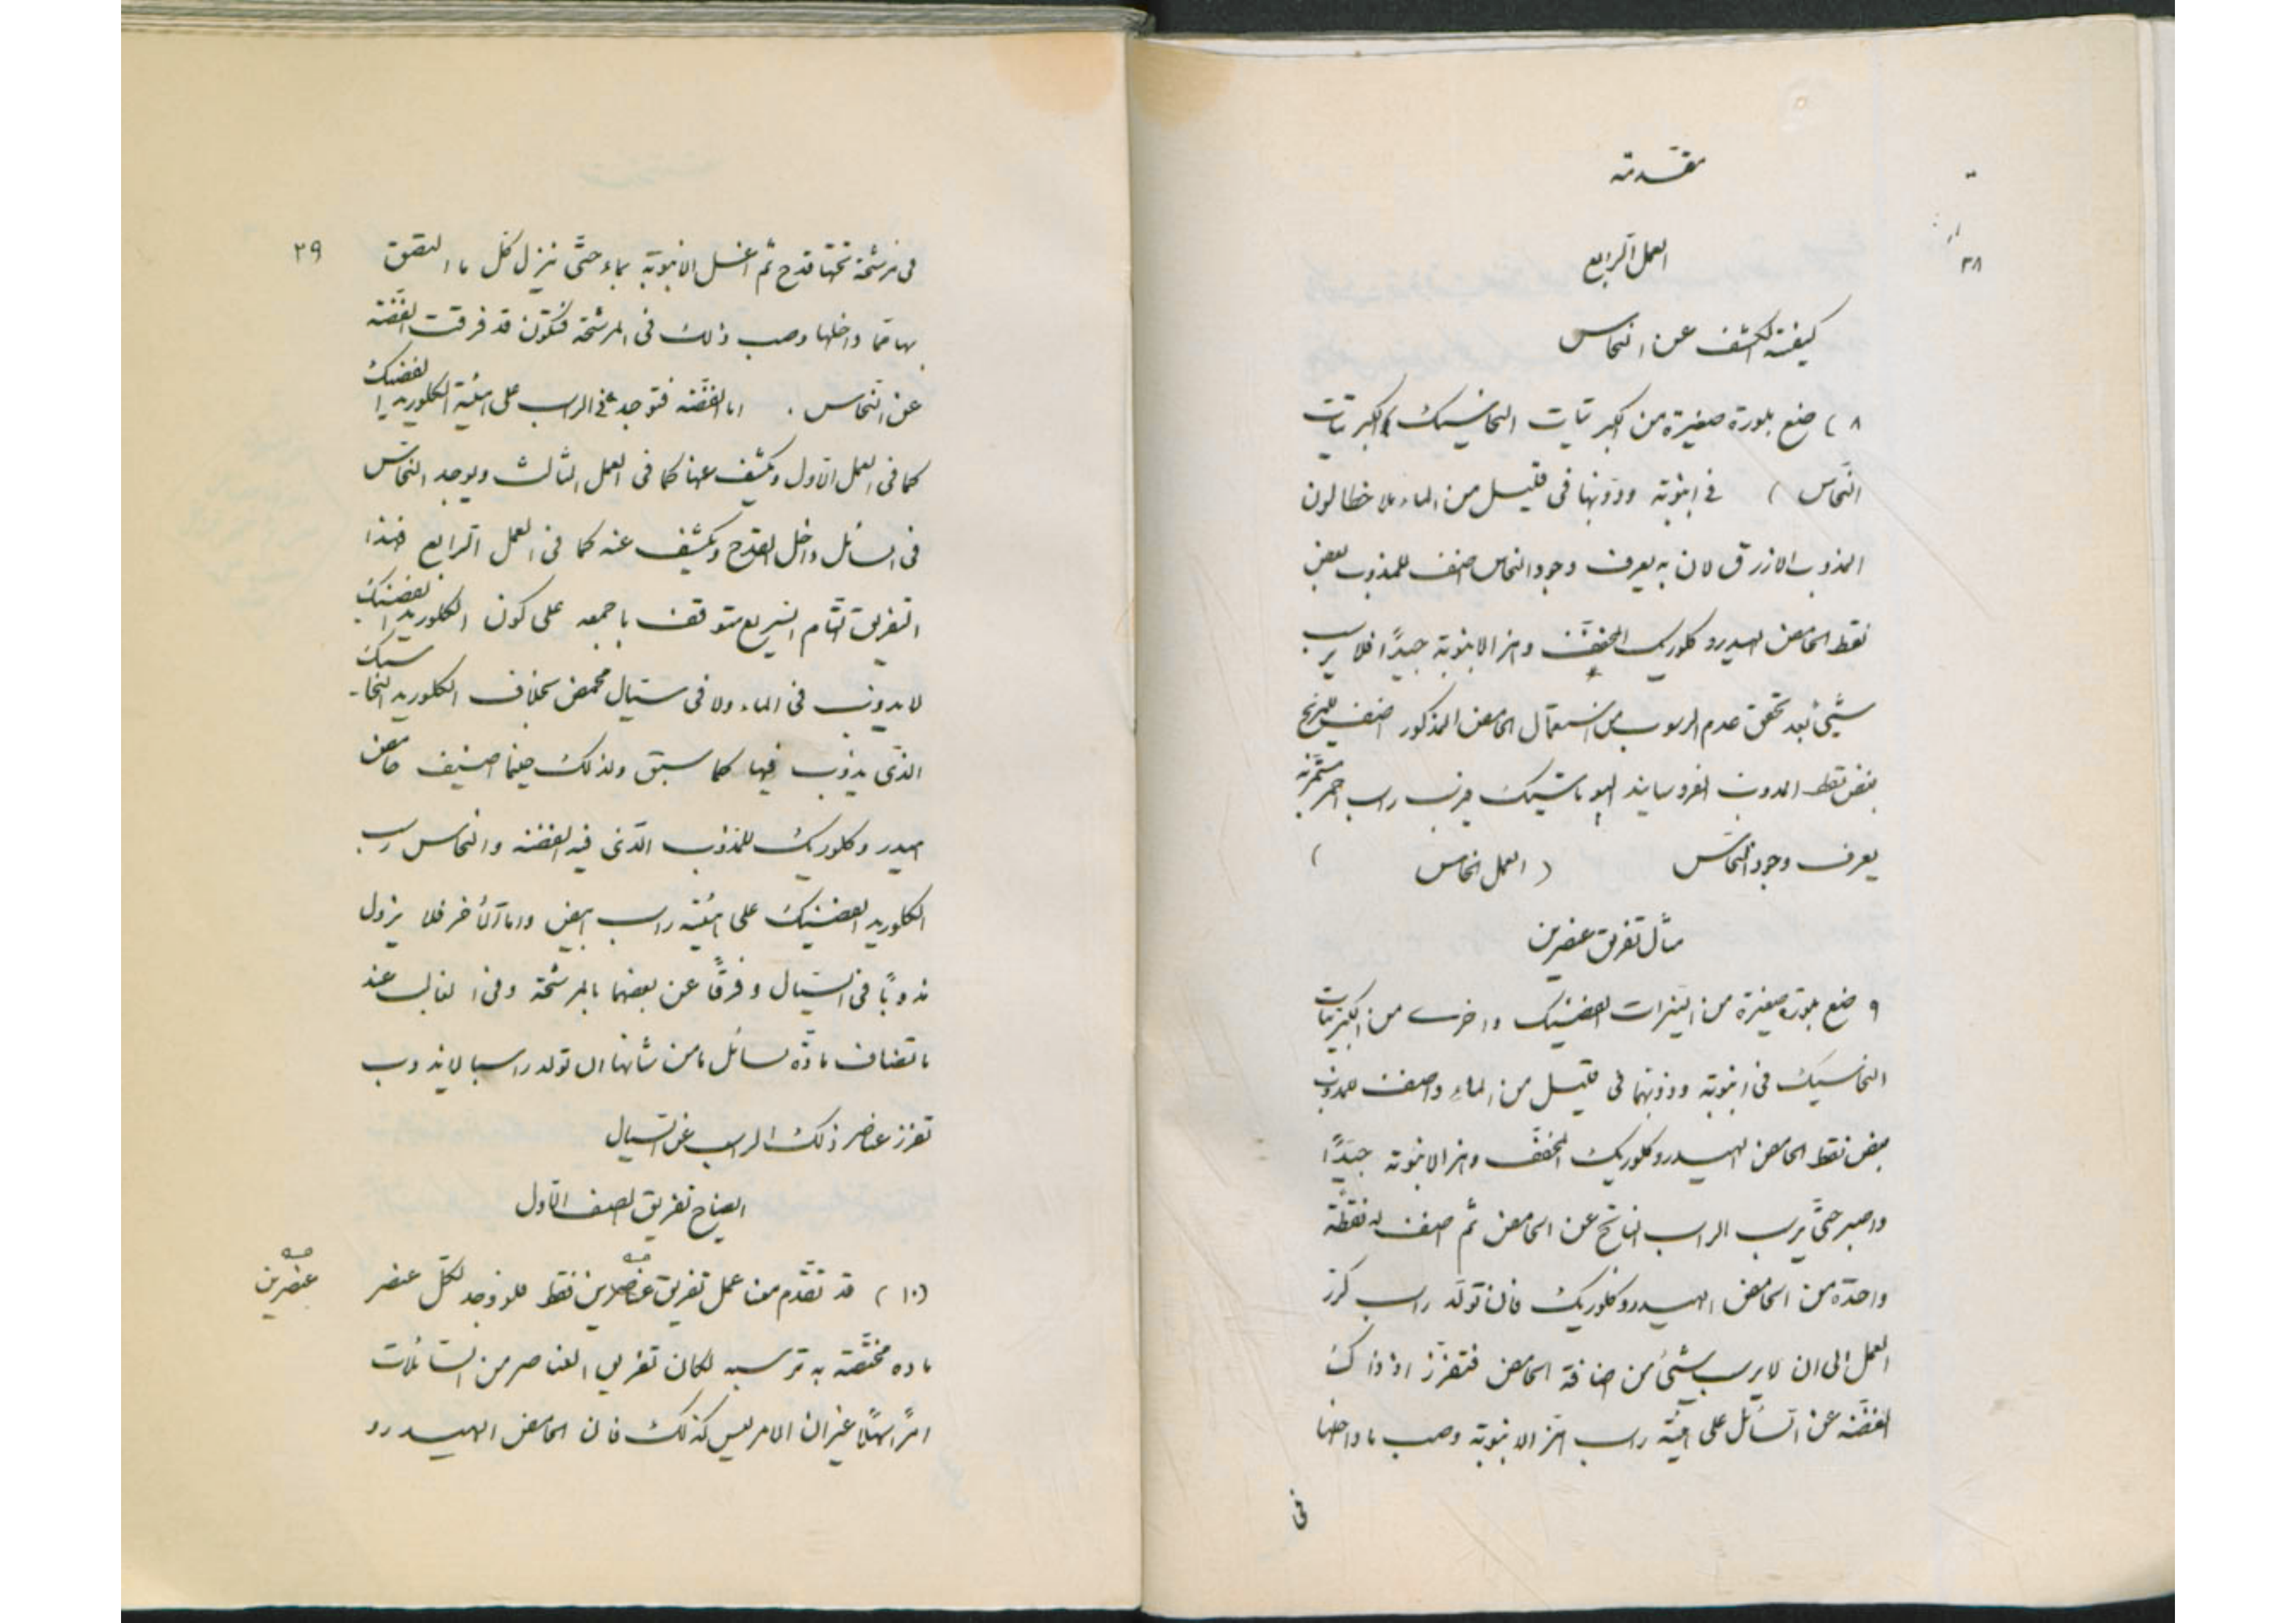 مقدمة
٣٨
العمل الرابع
كيفية الكشف عن النحاس
٨ ) ضع بلورة صغيرة من الكبريتات النحاسيك ( كبريتات
النحاس ) في انبوبة وذوبها في قليل من الماء ملاحظا لون
المذوب الازرق لان به يعرف وجود النحاس اضف للمذوب بعض
نقط الحامض الهيدروكلوريك المخفف وهز الانبوبة جيدًا فلا يرسب
شيئ بعد تحقق عدم الرسوب من استعمال الحامض المذكور اضف للمزيج
بعض نقط المذوب الفروسايند البوتاسيك فيرسب راسب احمر
يعرف وجود النحاس ( العمل الخامس )
مثال تفريق عنصرين
٩ ضع بلورة صغيرة من النيترات الفضيك واخرى من الكبريتات
النحاسيك في انبوبة وذوبهما في قليل من الماء واضف للمذوب
بعض نقط الحامض الهيدروكلوريك المخفف وهز الانبوبة جيدًا
واصبر حتى يرسب الراسب الناتج عن الحامض ثم اضف له نقطة
واحدة من الحامض الهيدروكلوريك فان تولد راسب كرر
العمل الى ان لا يرسب شيئ من اضافة الحامض فتفرز اذ ذاك
الفضة عن السائل على هيئة راسب هز الانبوبة وصب ما داخلها
في
٣٩
في مرشحة تحتها قدح ثم اغسل الانبوبة بماء حتى ينزل كل ما التصق
بها مما داخلها وصب ذلك في المرشحة فتكون قد فرقت الفضة
عن النحاس . اما الفضة فتوجد في الراسب على هيئة الكلوريد الفضيك
كما في العمل الاول ويكشف عنها كما في العمل الثالث ويوجد النحاس
في السائل داخل القدح ويكشف عنه كما في العمل الرابع فهذا
التفريق التام السريع متوقف باجمعه على كون الكلوريد الفضيك
لا يذوب في الماء ولا في سيال محمض بخلاف الكلوريد النحاسيك
الذي يذوب فيها كما سبق ولذلك حينما اضيف حامض
هيدروكلوريك للمذوب الذي فيه الفضة والنحاس رسب
الكلوريد الفضيك على هيئة راسب ابيض واما الآخر فلا يزول
مذوبًا في السيال وفرقًا عن بعضهما بالمرشحة وفي الغالب عند
ما تضاف مادة لسائل ما من شأنها ان تولد راسبا لا يذوب
تفرز عناصر ذلك الراسب عن السيال
ايضاح تفريق الصنف الاول
(١٠ ) قد تقدم معنا عمل تفريق عنصرين فقط فلو وجد لكل عنصر
عنصرين صح
مادة مختصة به ترسبه لكان تفريق العناصر من السائلات
امرًا سهلًا غير ان الامر ليس كذلك فان الحامض الهيدرو